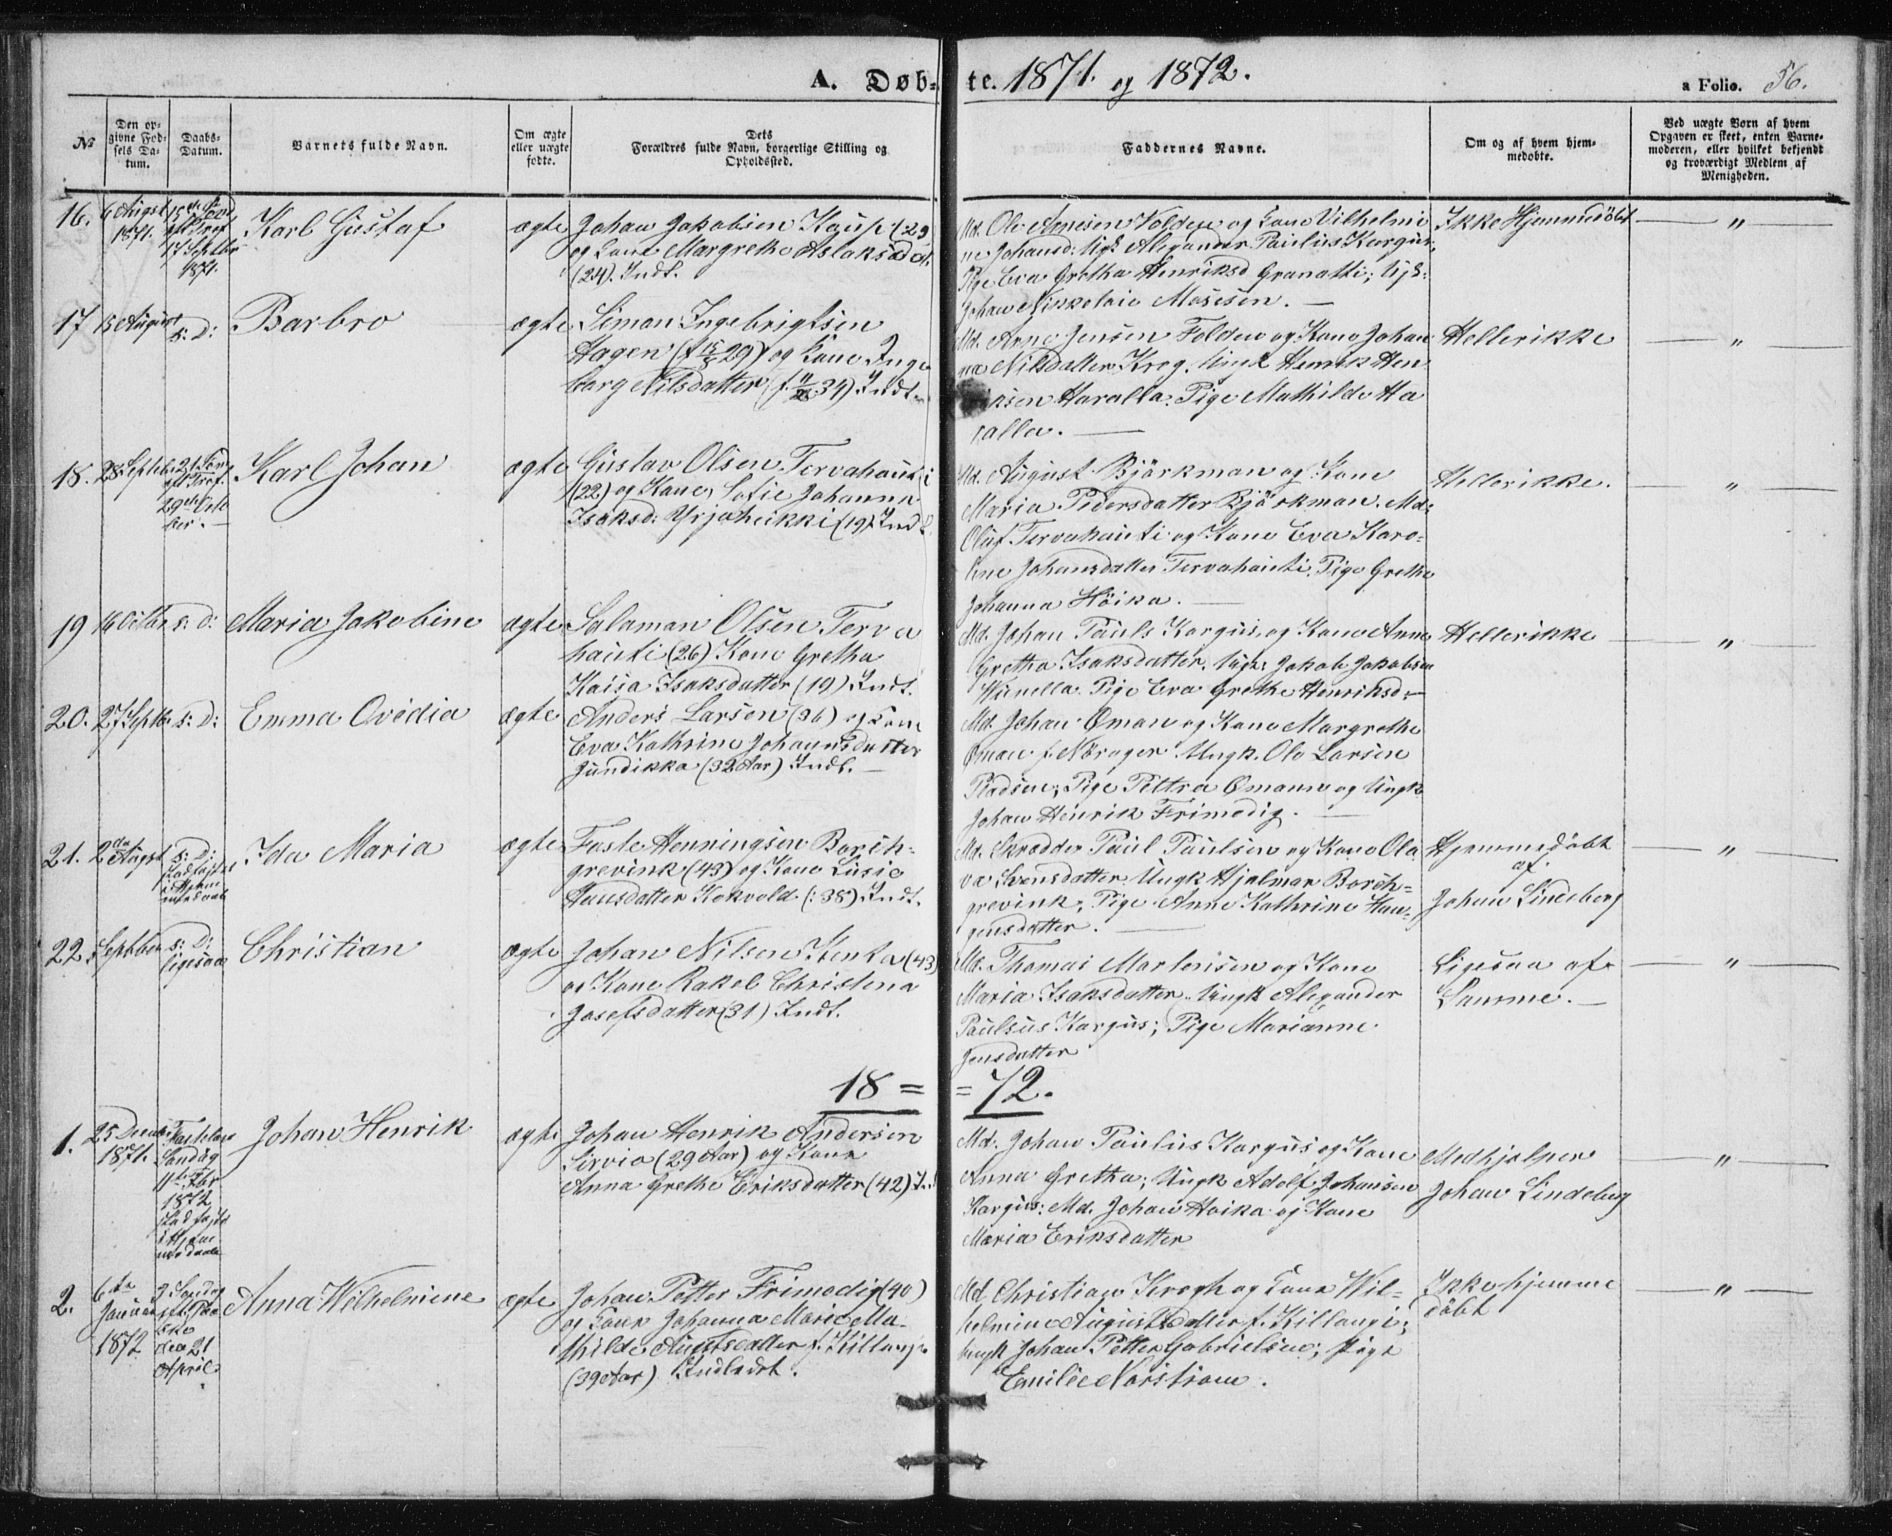 A. Døb- te. 1871. og 1872. a Folio. 56.
No
Den op-
givne Fød-
sels Da-
tum.
Daabs-
Datum.
Barnets fulde Navn.
Om ægte
eller uægte
fødte.
Dets
Forældres fulde Navn, borgerlige Stilling og
Opholdssted.
Faddernes Navne.
Om og af hvem hjem-
medøbte.
Ved uægte Børn af hvem
Opgaven er skeet, enten Barne-
moderen, eller hvilket bekjendt
og troværdigt Medlem af
Menigheden.
16. 6 August
1871.
17 Septbr
1871.
Karl Gustaf
ægte
Johan Jakobsen (29
og Kone Margrethe Aslaksdat.
(24). Indt.
Md. Ole Arnesen Volden og Kone Vilhelmi
ne Johansd: Ugk. Alexander Paulus Kargus,
Pige Eva Gretha Henriksd Granatti; Ugk:
Johan Nikkolaie Mosesen. —
Ikke Hjemmedöbt
— " —
17 13 August
s: D:
Barbro
ægte
Simon Ingebrigtsen
Hagen (f 29) og Kone Inge
borg Nilsdatter (f. 34) Indt.
Md. Arne Jensen Folden og Kone Johan
na Nilsdatter Krog. Ungk Henrik Hen
riksen Haralla. Pige Mathilde Ha
ralla. —
Hellerikke
— " —
18. 28 Septeb
21 Sønd
eft Tref.
29de Octo
ber. —
Karl Johan
ægte
Gustav Olsen Tervahauti
(22) og Kone, Sofie Johanna
Isaksd: Yrjaheikki (19) Indt
Md. August Björkman og Kone
Maria Pedersdatter Björkman. Md:
Oluf Tervahauti og Kone Eva Karo-
line Johansdatter Tervahauti. Pige Grethe
Johanna Höika. —
Hellerikke.
— " —
19 16 Octbr s: D:
Maria Jakobine
ægte
Salamon Olsen Terva
hauti (26) Kone Gretha
Kaisa Isaksdatter (19) Indt.
Md. Johan Pauls Kargus og Kone Anna
Gretha Isaksdatter. Ugk: Jakob Jakobsen
Winella Pige Eva Grethe Henriksd: —
Hellerikke
— " —
20. 27 Septbr s: D:
Emma Ovedia
ægte
Anders Larsen (36) og Kone
Eva Kathrine Johannsdatter
Jundikka (32 Aar) Indt. —
Md. Johan Oman og Kone Margrethe
Oman f. Norager Ungk. Ole Larsen
Pladsen; Pige Pettra Omann og Ungk
Johan Henrik Frimodig. —
21. 2den
August
s: D:
stadfæstet
i Hjem
medaab
Ida Maria
ægte
Faste Henningsen Borch-
grevink (43) og Kone Lusie
Hansdatter Kokvold (: 38) Indt.
Md. Skrædder Paul Paulsen og Kone Ola
va Svensdatter. Ungk Hjalmar Borch-
grevink; Pige Anne Kathrine Han-
sensdatter. —
Hjemmedöbt
af
Johan Lindeberg
— " —
22. 5 Septbbr
s: D:
ligesaa
Christian
ægte
Johan Nilsen Kenta (43)
og Kone Rakel Christena
Josefsdatter (31) Indt.
Md. Thomas Martenisen og Kone
Maria Isaksdatter. Ungk Alexander
Paulsus Kargus; Pige Marianne
Jensdatter
Ligesaa af
Samme. —
— " —
18 = = 72.
1. 25 Decebr
1871.
Fastelavns
Søndag
11te Febr
1872
stadfæstet
i Hjem
medaab
Johan Henrik
ægte
Johan Henrik Andersen
Sirvio (29 Aar) og Kone
Anna Grethe Eriksdatter (42) Ind
Md. Johan Paulus Kargus og Kone
Anna Gretha; Ungk Adolf Johansen
Kargus; Md. Johan Hoika og Kone
Maria Eriksdatter
Medhjelper
Johan Lindeberg
— " —
2. 6te
Januar
1872
3 Søndag
eft. Paa
ske
den 21
April.
Anna Wilhelmine
ægte
Johan Petter Frimodig (40)
og Kone Johanna Marie Ma-
thilde Augustsdatter f. Killangi
(39 Aar) Indlædt.
Md. Christian Krogh og Kone Wil-
helmine Augustsdatter f. Killangi;
Ungk Johan Petter Gabrielsen; Pige
Emilie Norstrom.
Ikke hjemme
döbt
— " —